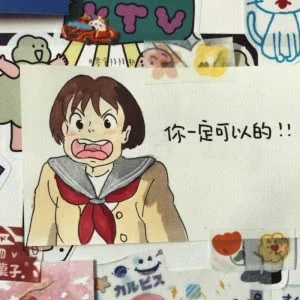 KTV
你一定可以的!!
カルピス